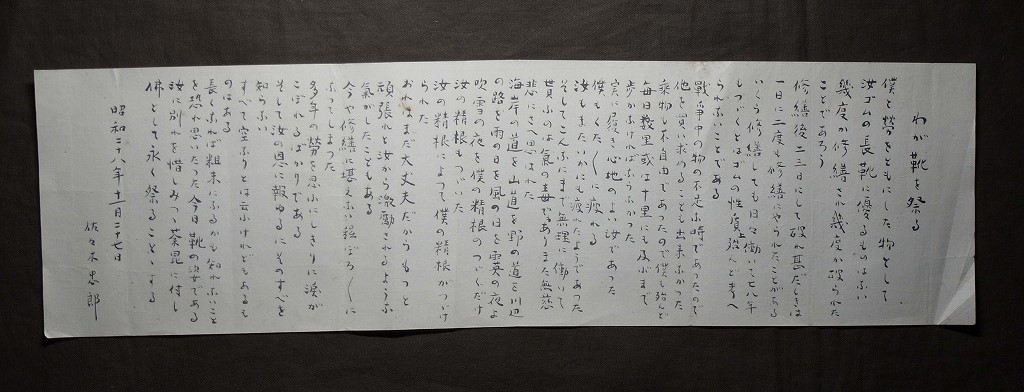 わが靴を祭る
僕と勞をともにした物として
汝ゴムの長靴に優るものはない
幾度か修繕され幾度か破られた
ことであろう
修繕後二三日にして破れ甚だしきは
一日に二度も修繕にやられたことがある
いくら修繕しても日々働いて七八年
もつゞくとはゴムの性質上殆んど考へ
られないことである
戰爭中の物の不足な時であったので
他を買い求めることも出来なかった
乘物も不自由であったので僕も殆んど
毎日数里或は十里にも及ぶまで
歩かなければならなかった
実に履き心地のよい汝であった
僕もくたくたに疲れる
汝もまたいかにも疲れたようであった
そしてこんなにまで無理に働いて
貰ふのは氣の毒でありまた無慈
悲にさへ思はれた
海岸の道を山道を野の道を川辺
の路を雨の日を風の日を霙の夜よ
吹雪の夜を僕の精根のつゞくだけ
汝の精根もつゞいた
汝の精根によって僕の精根がつゞけ
られた
おれはまだ大丈夫だからもっと
頑張れと汝から激勵されるような
氣がしたこともある
今や修繕に堪えない程ぼろぼろに
なってしまった
多年の勞を思ふにしきりに涙が
こぼれるばかりである
そして汝の恩に報ゆるにそのすべを
知らない
すべて空なりとは云ふけれどもあるも
のはある
長くなれば粗末になるかも知れないこと
を恐れ思いたった今日靴の姿である
汝に別れを惜しみつゝ荼毘に付し
佛として永く祭ることとする
昭和二十八年十一月二十七日
佐々木忠郎